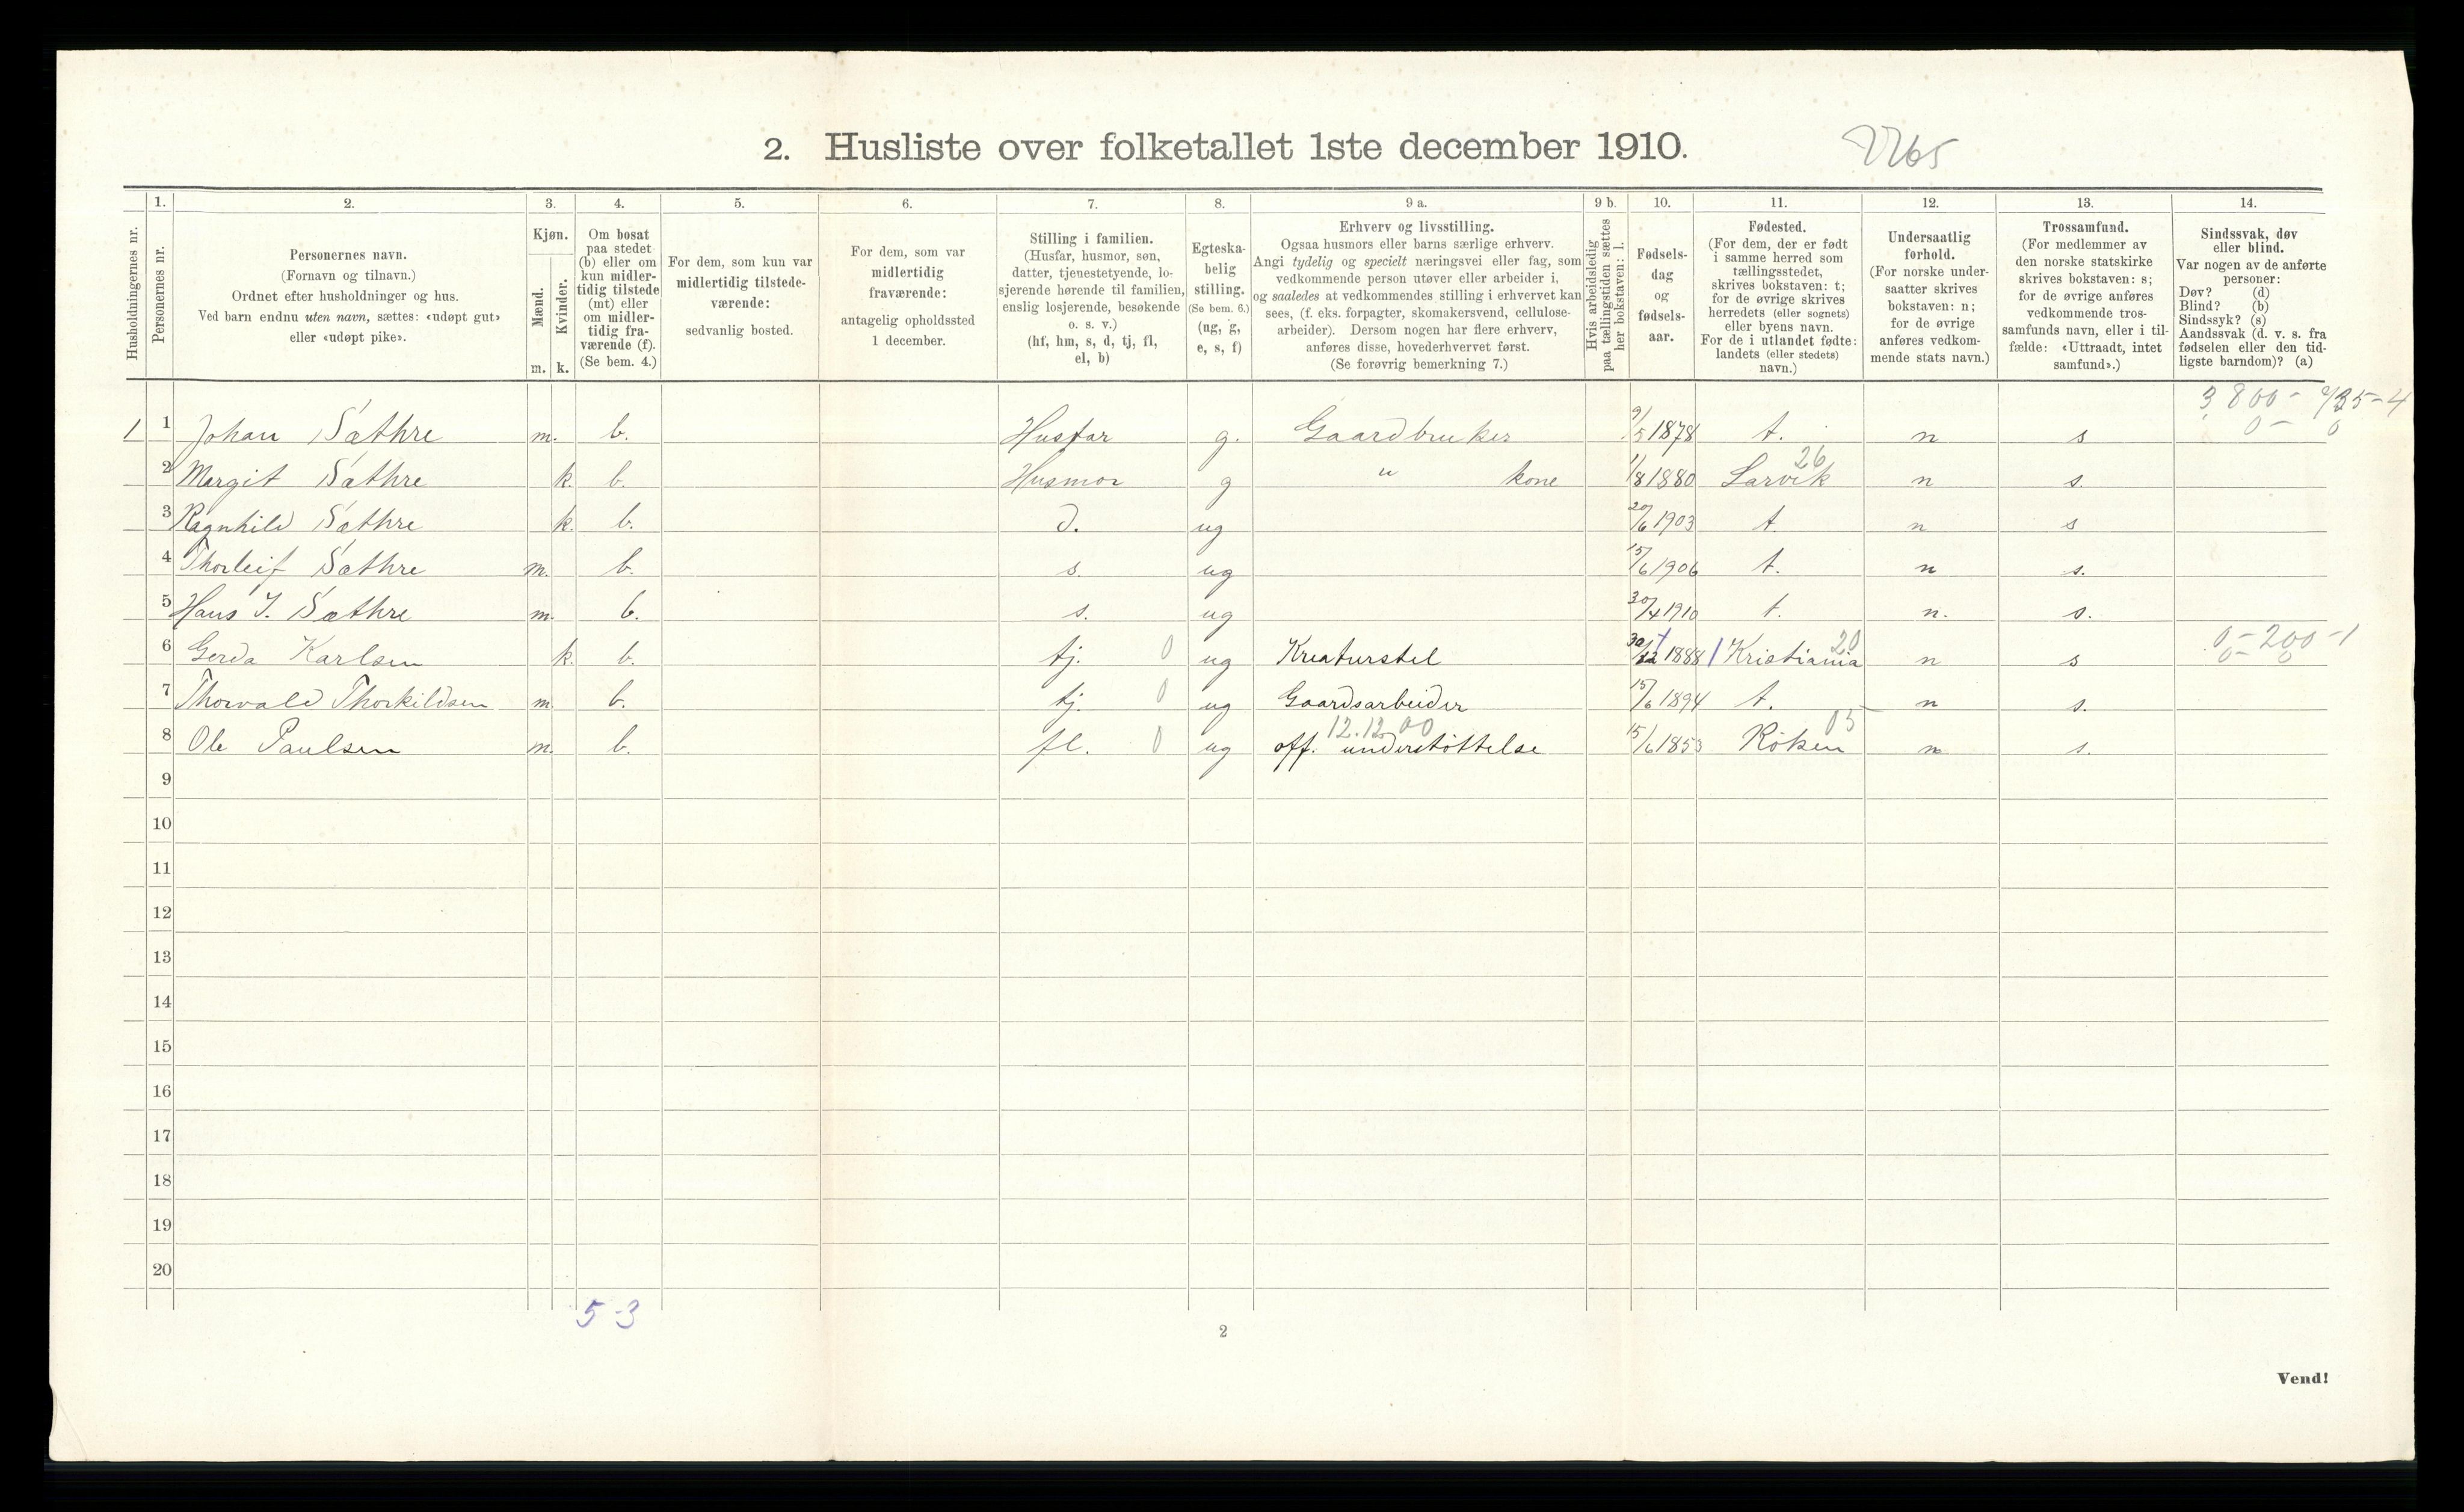 2. Husliste over folketallet 1ste december 1910.
2265
Husholdningernes nr.
1.
Personernes nr.
2.
Personernes navn.
(Fornavn og tilnavn.)
Ordnet efter husholdninger og hus.
Ved barn endnu uten navn, sættes: «udøpt gut»
eller «udøpt pike».
3.
Kjøn.
Mænd.
Kvinder.
m. k.
4.
Om bosat
paa stedet
(b) eller om
kun midler-
tidig tilstede
(mt) eller
om midler-
tidig fra-
værende (f).
(Se bem. 4.)
5.
For dem, som kun var
midlertidig tilstede-
værende:
sedvanlig bosted.
6.
For dem, som var
midlertidig
fraværende:
antagelig opholdssted
1 december.
7.
Stilling i familien.
(Husfar, husmor, søn,
datter, tjenestetyende, lo-
sjerende hørende til familien,
enslig losjerende, besøkende
o. s. v.)
(hf, hm, s, d, tj, fl,
el, b)
8.
Egteska-
belig
stilling.
(Se bem. 6.)
(ug, g,
e, s, f)
9 a.
Erhverv og livsstilling.
Ogsaa husmors eller barns særlige erhverv.
Angi tydelig og specielt næringsvei eller fag, som
vedkommende person utøver eller arbeider i,
og saaledes at vedkommendes stilling i erhvervet kan
sees, (f. eks. forpagter, skomakersvend, cellulose-
arbeider). Dersom nogen har flere erhverv,
anføres disse, hovederhvervet først.
(Se forøvrig bemerkning 7.)
9 b.
Hvis arbeidsledig
paa tællingstiden sættes
her bokstaven: l.
10.
Fødsels-
dag
og
fødsels-
aar.
11.
Fødested.
(For dem, der er født
i samme herred som
tællingsstedet,
skrives bokstaven: t;
for de øvrige skrives
herredets (eller sognets)
eller byens navn.
For de i utlandet fødte:
landets (eller stedets)
navn.)
12.
Undersaatlig
forhold.
(For norske under-
saatter skrives
bokstaven: n;
for de øvrige
anføres vedkom-
mende stats navn.)
13.
Trossamfund.
(For medlemmer av
den norske statskirke
skrives bokstaven: s;
for de øvrige anføres
vedkommende tros-
samfunds navn, eller i til-
fælde: «Uttraadt, intet
samfund».)
14.
Sindssvak, døv
eller blind.
Var nogen av de anførte
personer:
Døv? (d)
Blind? (b)
Sindssyk? (s)
Aandssvak (d. v. s. fra
fødselen eller den tid-
ligste barndom)? (a)
1 1 Johan Sæthre m. b. Husfar g. Gaardbruker 9/5 1878 t. n s
0- 0
2 Margit Sæthre k. b. Husmor g " kone 1/8 1880 Larvik 26 n s.
3 Ragnhild Sæthre k. b. d. ug 20/6 1903 t. n s
4 Thorleif Sæthre m. b. s. ug 15/6 1906 t. n s.
5 Hans J. Sæthre m. b. s. ug 30/4 1910 t. n. s.
6 Gerda Karlsen k. b. tj. 0 ug Kreaturstel 30/12 1888 Kristiania 20 n s 0-200-1
0- 0
7 Thorvald Thorkildsen m b. tj. 0 ug Gaardsarbeider 15/6 1894 t. n s.
8 Ole Paulsen m. b. fl. 0 ug off. understøttelse 12.12.00 15/6 1853 Röken 05 n s.
9
10
11
12
13
14
15
16
17
18
19
20
5-3
2
Vend!